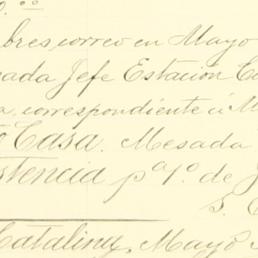 bres, correo en Mayo
ada Jefe Estacion C
a, correspondiente á M
Casa. Mesada
stencia pa 1º. de J
S.
Catalina, Mayo